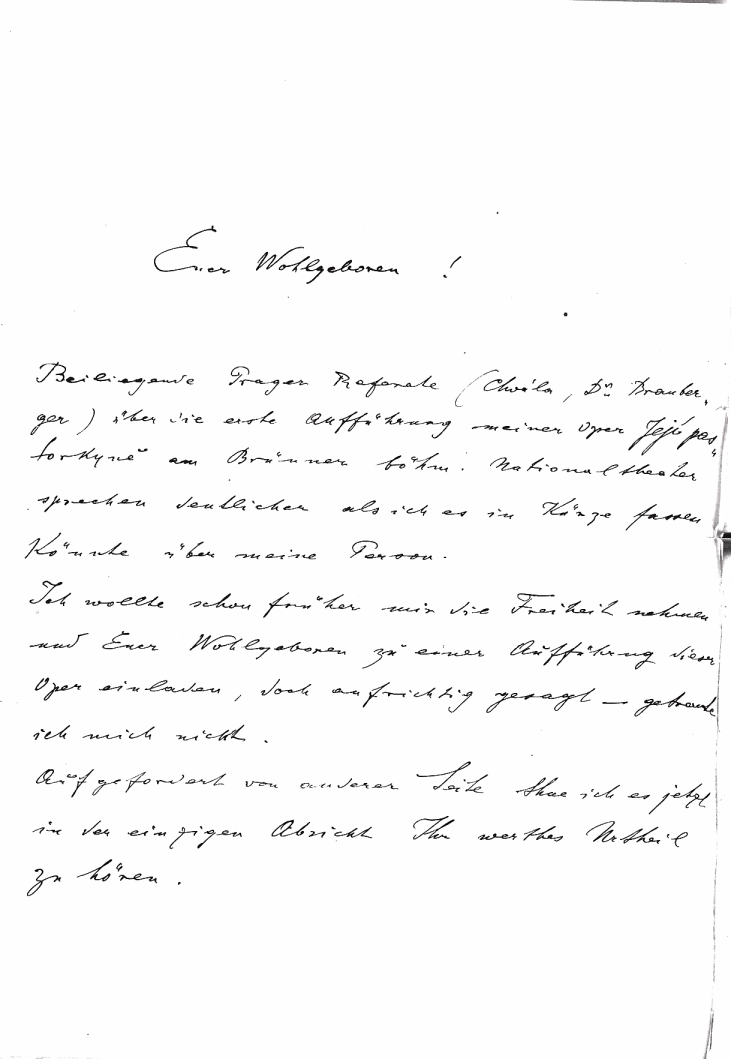 Euer Wohlgeboren !
Beiliegende Prager Referate (Chvála, Dr. Branber-
ger) über die erste Aufführung meiner Oper Její pas-
torkyně am Brünner böhm. Nationaltheater
sprechen deutlicher als ich es in Kürze fassen
könnte über meine Person.
Ich wollte schon früher mir die Freiheit nehmen
und Euer Wohlgeboren zu einer Aufführung dieser
Oper einladen, doch aufrichtig gesagt — getraute
ich mich nicht.
Aufgefordert von anderer Seite thue ich es jetzt
in der einzigen Absicht Ihr werthes Urtheil
zu hören.